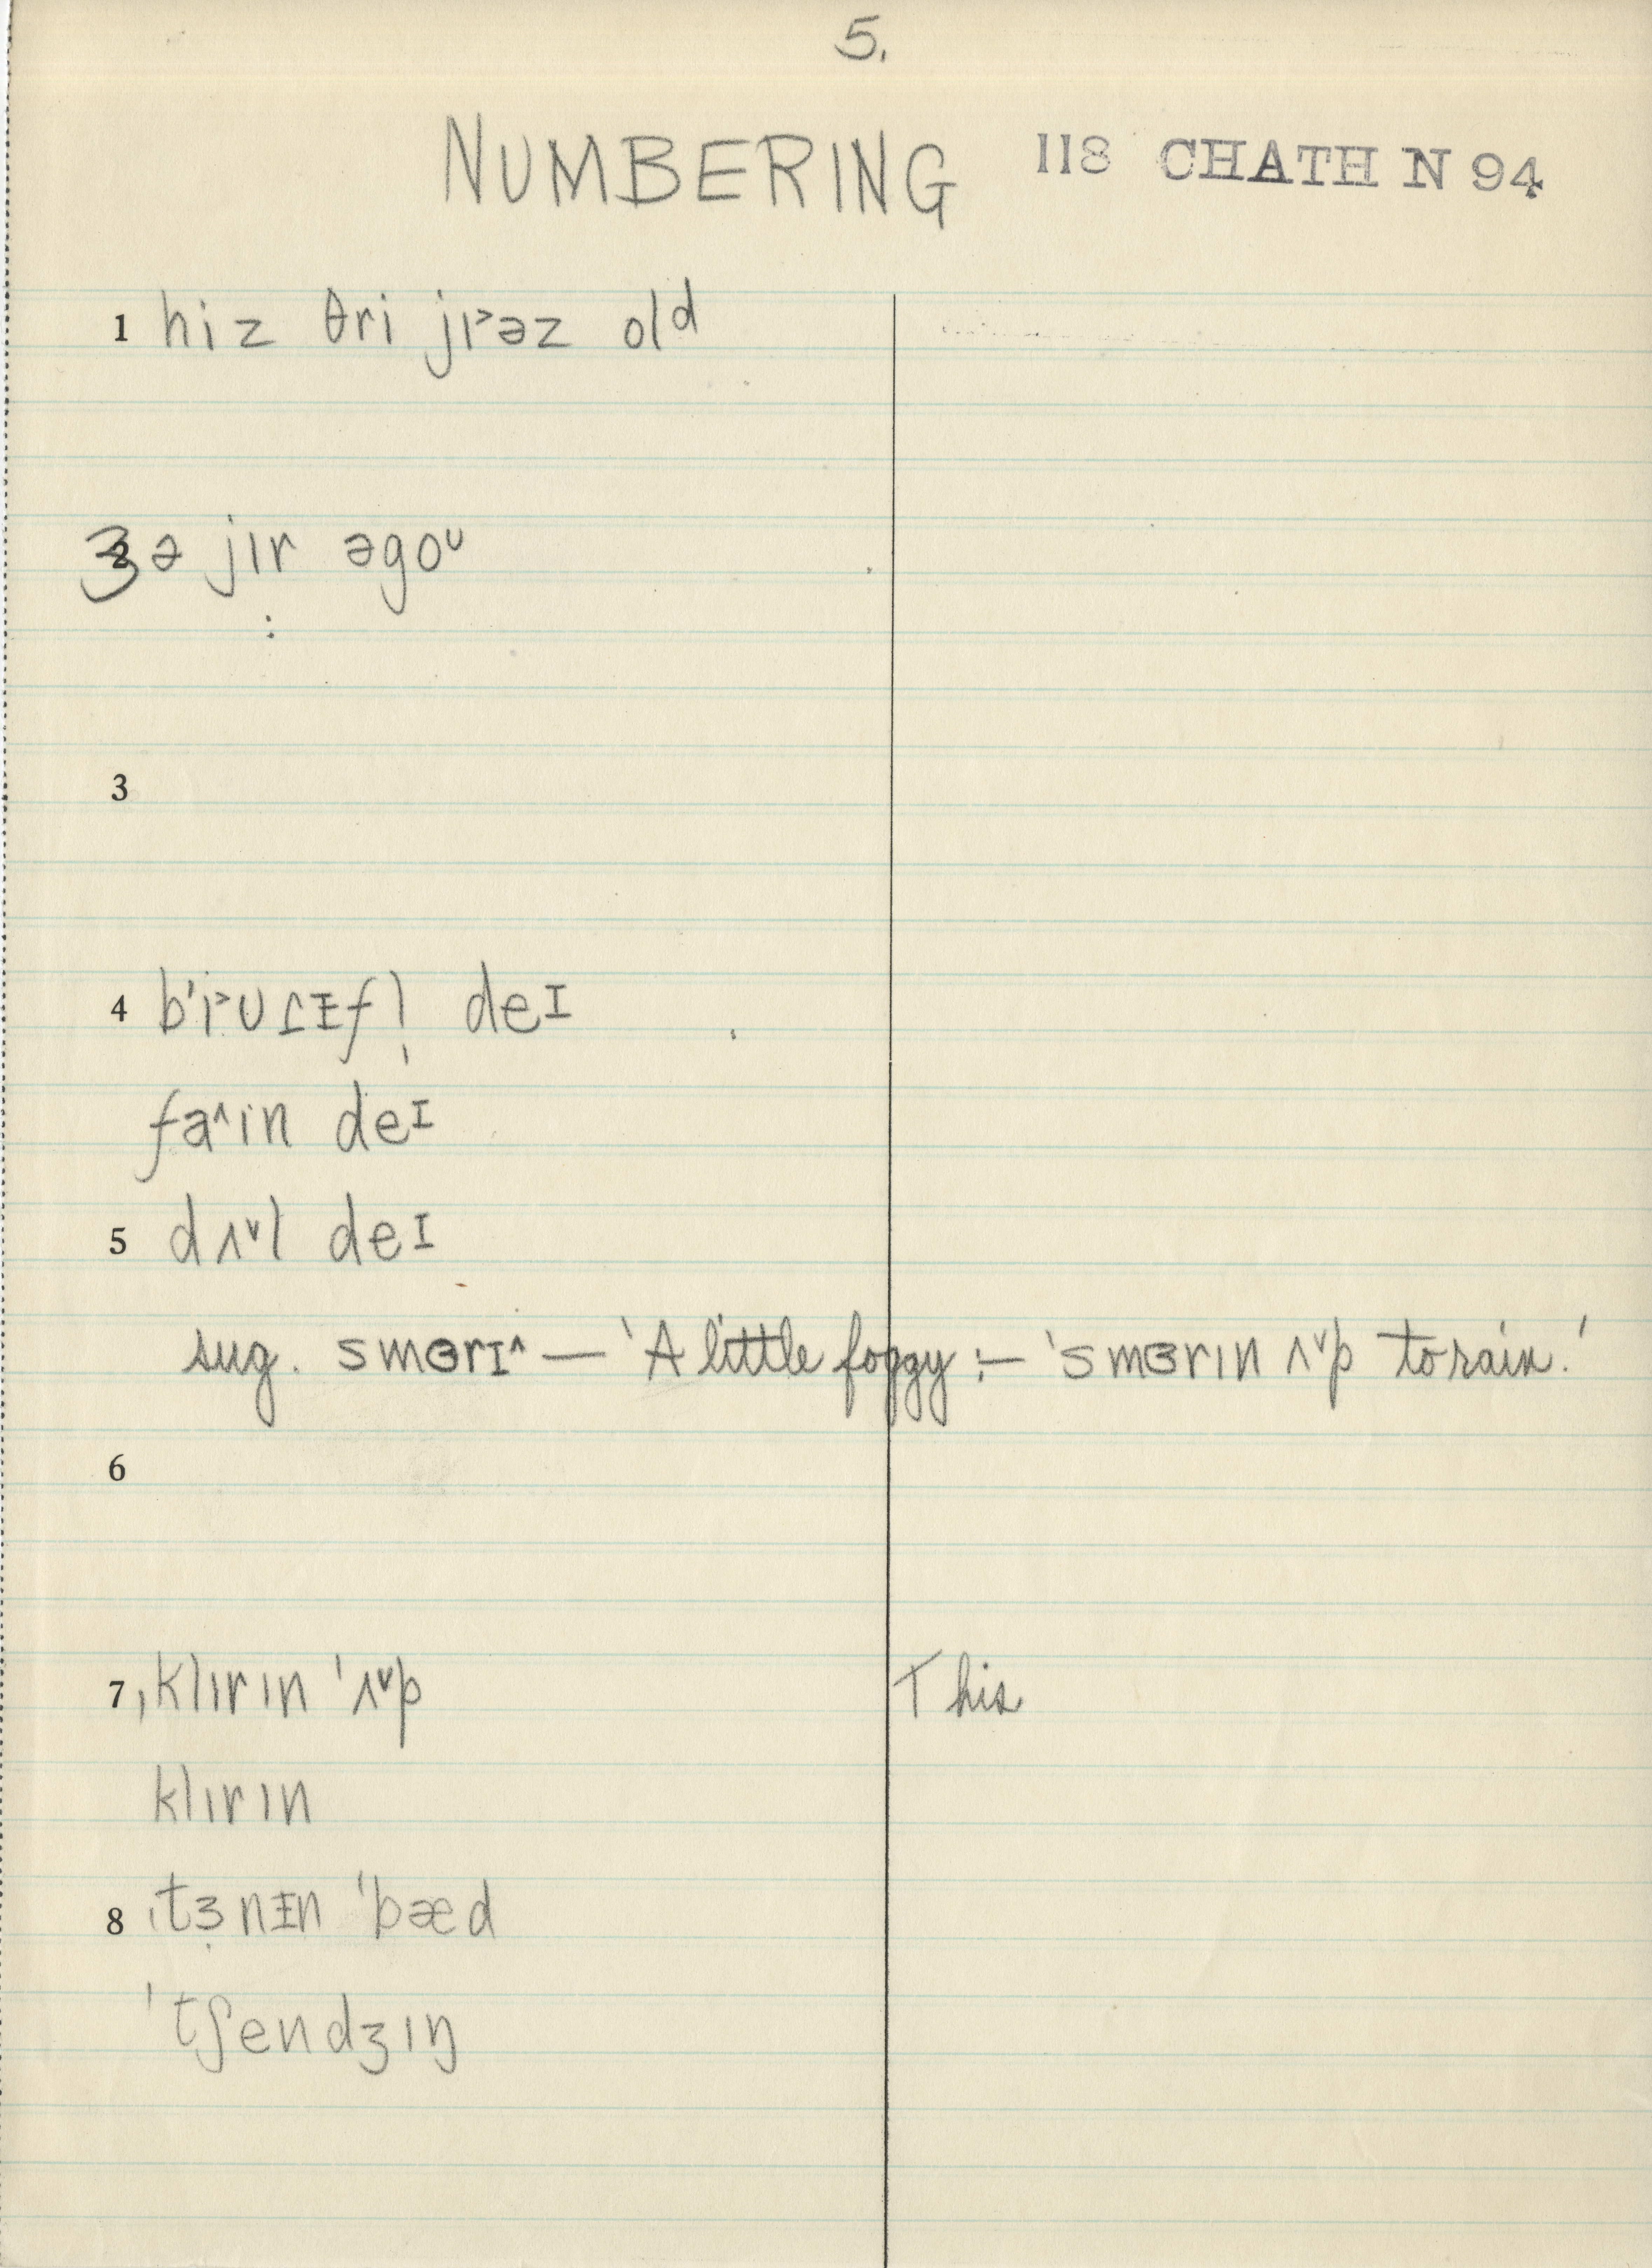 5.
NUMBERING 118 CHATH N 94
1 hiz θri jɪ˃əz old
2 ʒə jɪr əgoᴜ
3
4 b'ɪ˃ᴜɾɪfl̩ deɪ
fa˄in deɪ
5 dʌ˅l deɪ
sug. smɜrɪ˄ — 'A little foggy :— 'smɜrɪn ʌ˅p to rain.'
6
7 ˌklɪrɪn ˈʌ˅p This
klɪrɪn
8 ˌtɜ̣nɪn ˈbæd
ˈtʃendʒɪŋ